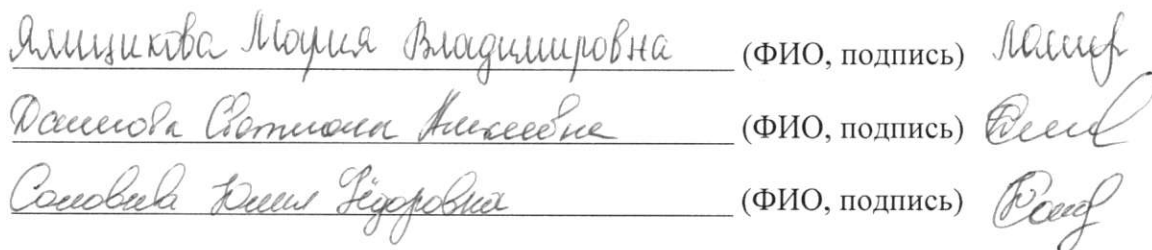 Ямщикова Мария Владимировна (ФИО, подпись)
Данилова Светлана (ФИО, подпись)
Соловьева Юлия Фёдоровна (ФИО, подпись)